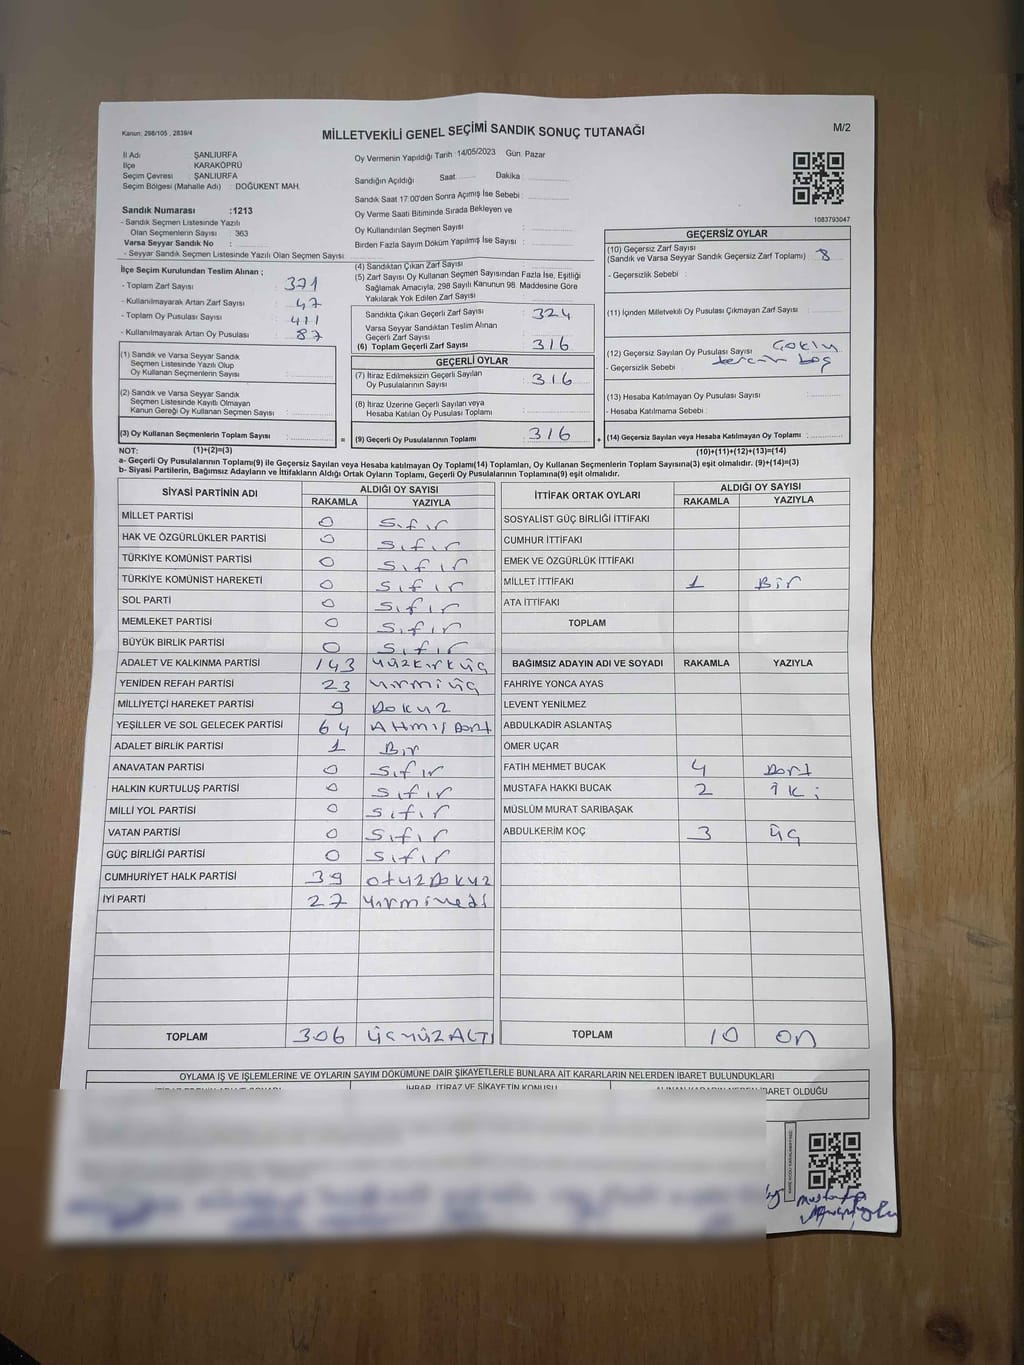 Kanun: 298/105 , 2839/4
MİLLETVEKİLİ GENEL SEÇİMİ SANDIK SONUÇ TUTANAĞI
M/2
İl Adı ŞANLIURFA
İlçe KARAKÖPRÜ
Seçim Çevresi : ŞANLIURFA
Seçim Bölgesi (Mahalle Adı) : DOĞUKENT MAH.
Oy Vermenin Yapıldığı Tarih 14/05/2023 Gün Pazar
Sandığın Açıldığı Saat Dakika
Sandık Saat 17:00'den Sonra Açımış İse Sebebi :
Oy Verme Saati Bitiminde Sırada Bekleyen ve
Oy Kullandırılan Seçmen Sayısı :
Birden Fazla Sayım Döküm Yapılmış İse Sayısı :
1083793047
Sandık Numarası :1213
- Sandık Seçmen Listesinde Yazılı
Olan Seçmenlerin Sayısı : 363
Varsa Seyyar Sandık No :
- Seyyar Sandık Seçmen Listesinde Yazılı Olan Seçmen Sayısı
İlçe Seçim Kurulundan Teslim Alınan ;
- Toplam Zarf Sayısı : 371
- Kullanılmayarak Artan Zarf Sayısı : 47
- Toplam Oy Pusulası Sayısı : 411
- Kullanılmayarak Artan Oy Pusulası : 87
(1) Sandık ve Varsa Seyyar Sandık
Seçmen Listesinde Yazılı Olup
Oy Kullanan Seçmenlerin Sayısı :
(2) Sandık ve Varsa Seyyar Sandık
Seçmen Listesinde Kayıtlı Olmayan
Kanun Gereği Oy Kullanan Seçmen Sayısı :
(3) Oy Kullanan Seçmenlerin Toplam Sayısı :
(4) Sandıktan Çıkan Zarf Sayısı :
(5) Zarf Sayısı Oy Kullanan Seçmen Sayısından Fazla İse, Eşitliği
Sağlamak Amacıyla, 298 Sayılı Kanunun 98. Maddesine Göre
Yakılarak Yok Edilen Zarf Sayısı :
Sandıkta Çıkan Geçerli Zarf Sayısı : 324
Varsa Seyyar Sandıktan Teslim Alınan
Geçerli Zarf Sayısı :
(6) Toplam Geçerli Zarf Sayısı : 316
GEÇERLİ OYLAR
(7) İtiraz Edilmeksizin Geçerli Sayılan
Oy Pusulalarının Sayısı : 316
(8) İtiraz Üzerine Geçerli Sayılan veya
Hesaba Katılan Oy Pusulası Toplamı :
= (9) Geçerli Oy Pusulalarının Toplamı : 316 +
GEÇERSİZ OYLAR
(10) Geçersiz Zarf Sayısı
(Sandık ve Varsa Seyyar Sandık Geçersiz Zarf Toplamı) : 8
- Geçersizlik Sebebi :
(11) İçinden Milletvekili Oy Pusulası Çıkmayan Zarf Sayısı :
(12) Geçersiz Sayılan Oy Pusulası Sayısı :
- Geçersizlik Sebebi : boş
(13) Hesaba Katılmayan Oy Pusulası Sayısı :
- Hesaba Katılmama Sebebi :
(14) Geçersiz Sayılan veya Hesaba Katılmayan Oy Toplamı :
NOT: (1)+(2)=(3) (10)+(11)+(12)+(13)=(14)
a- Geçerli Oy Pusulalarının Toplamı(9) ile Geçersiz Sayılan veya Hesaba katılmayan Oy Toplamı(14) Toplamları, Oy Kullanan Seçmenlerin Toplam Sayısına(3) eşit olmalıdır. (9)+(14)=(3)
b- Siyasi Partilerin, Bağımsız Adayların ve İttifakların Aldığı Oyların Toplamı, Geçerli Oy Pusulalarının Toplamına(9) eşit olmalıdır.
SİYASİ PARTİNİN ADI ALDIĞI OY SAYISI
RAKAMLA YAZIYLA
MİLLET PARTİSİ 0 sıfır
HAK VE ÖZGÜRLÜKLER PARTİSİ 0 sıfır
TÜRKİYE KOMÜNİST PARTİSİ 0 sıfır
TÜRKİYE KOMÜNİST HAREKETİ 0 sıfır
SOL PARTİ 0 sıfır
MEMLEKET PARTİSİ 0 sıfır
BÜYÜK BİRLİK PARTİSİ 0 sıfır
ADALET VE KALKINMA PARTİSİ 143 yüzkırküç
YENİDEN REFAH PARTİSİ 23 yirmiüç
MİLLİYETÇİ HAREKET PARTİSİ 9 Dokuz
YEŞİLLER VE SOL GELECEK PARTİSİ 64 Atmış Dört
ADALET BİRLİK PARTİSİ 1 Bir
ANAVATAN PARTİSİ 0 sıfır
HALKIN KURTULUŞ PARTİSİ 0 sıfır
MİLLİ YOL PARTİSİ 0 sıfır
VATAN PARTİSİ 0 sıfır
GÜÇ BİRLİĞİ PARTİSİ 0 sıfır
CUMHURİYET HALK PARTİSİ 39 otuzDokuz
İYİ PARTİ 27 yirmiyedi
TOPLAM 306 üçyüzALTI
İTTİFAK ORTAK OYLARI ALDIĞI OY SAYISI
RAKAMLA YAZIYLA
SOSYALİST GÜÇ BİRLİĞİ İTTİFAKI
CUMHUR İTTİFAKI
EMEK VE ÖZGÜRLÜK İTTİFAKI
MİLLET İTTİFAKI 1 Bir
ATA İTTİFAKI
TOPLAM
BAĞIMSIZ ADAYIN ADI VE SOYADI RAKAMLA YAZIYLA
FAHRİYE YONCA AYAS
LEVENT YENİLMEZ
ABDULKADİR ASLANTAŞ
ÖMER UÇAR
FATİH MEHMET BUCAK 4 Dört
MUSTAFA HAKKI BUCAK 2 iki
MÜSLÜM MURAT SARIBAŞAK
ABDULKERİM KOÇ 3 üç
TOPLAM 10 on
OYLAMA İŞ VE İŞLEMLERİNE VE OYLARIN SAYIM DÖKÜMÜNE DAİR ŞİKAYETLERLE BUNLARA AİT KARARLARIN NELERDEN İBARET BULUNDUKLARI
İHBAR, İTİRAZ VE ŞİKAYETİN KONUSU
ALINAN KARARIN NEDEN İBARET OLDUĞU
mustafa